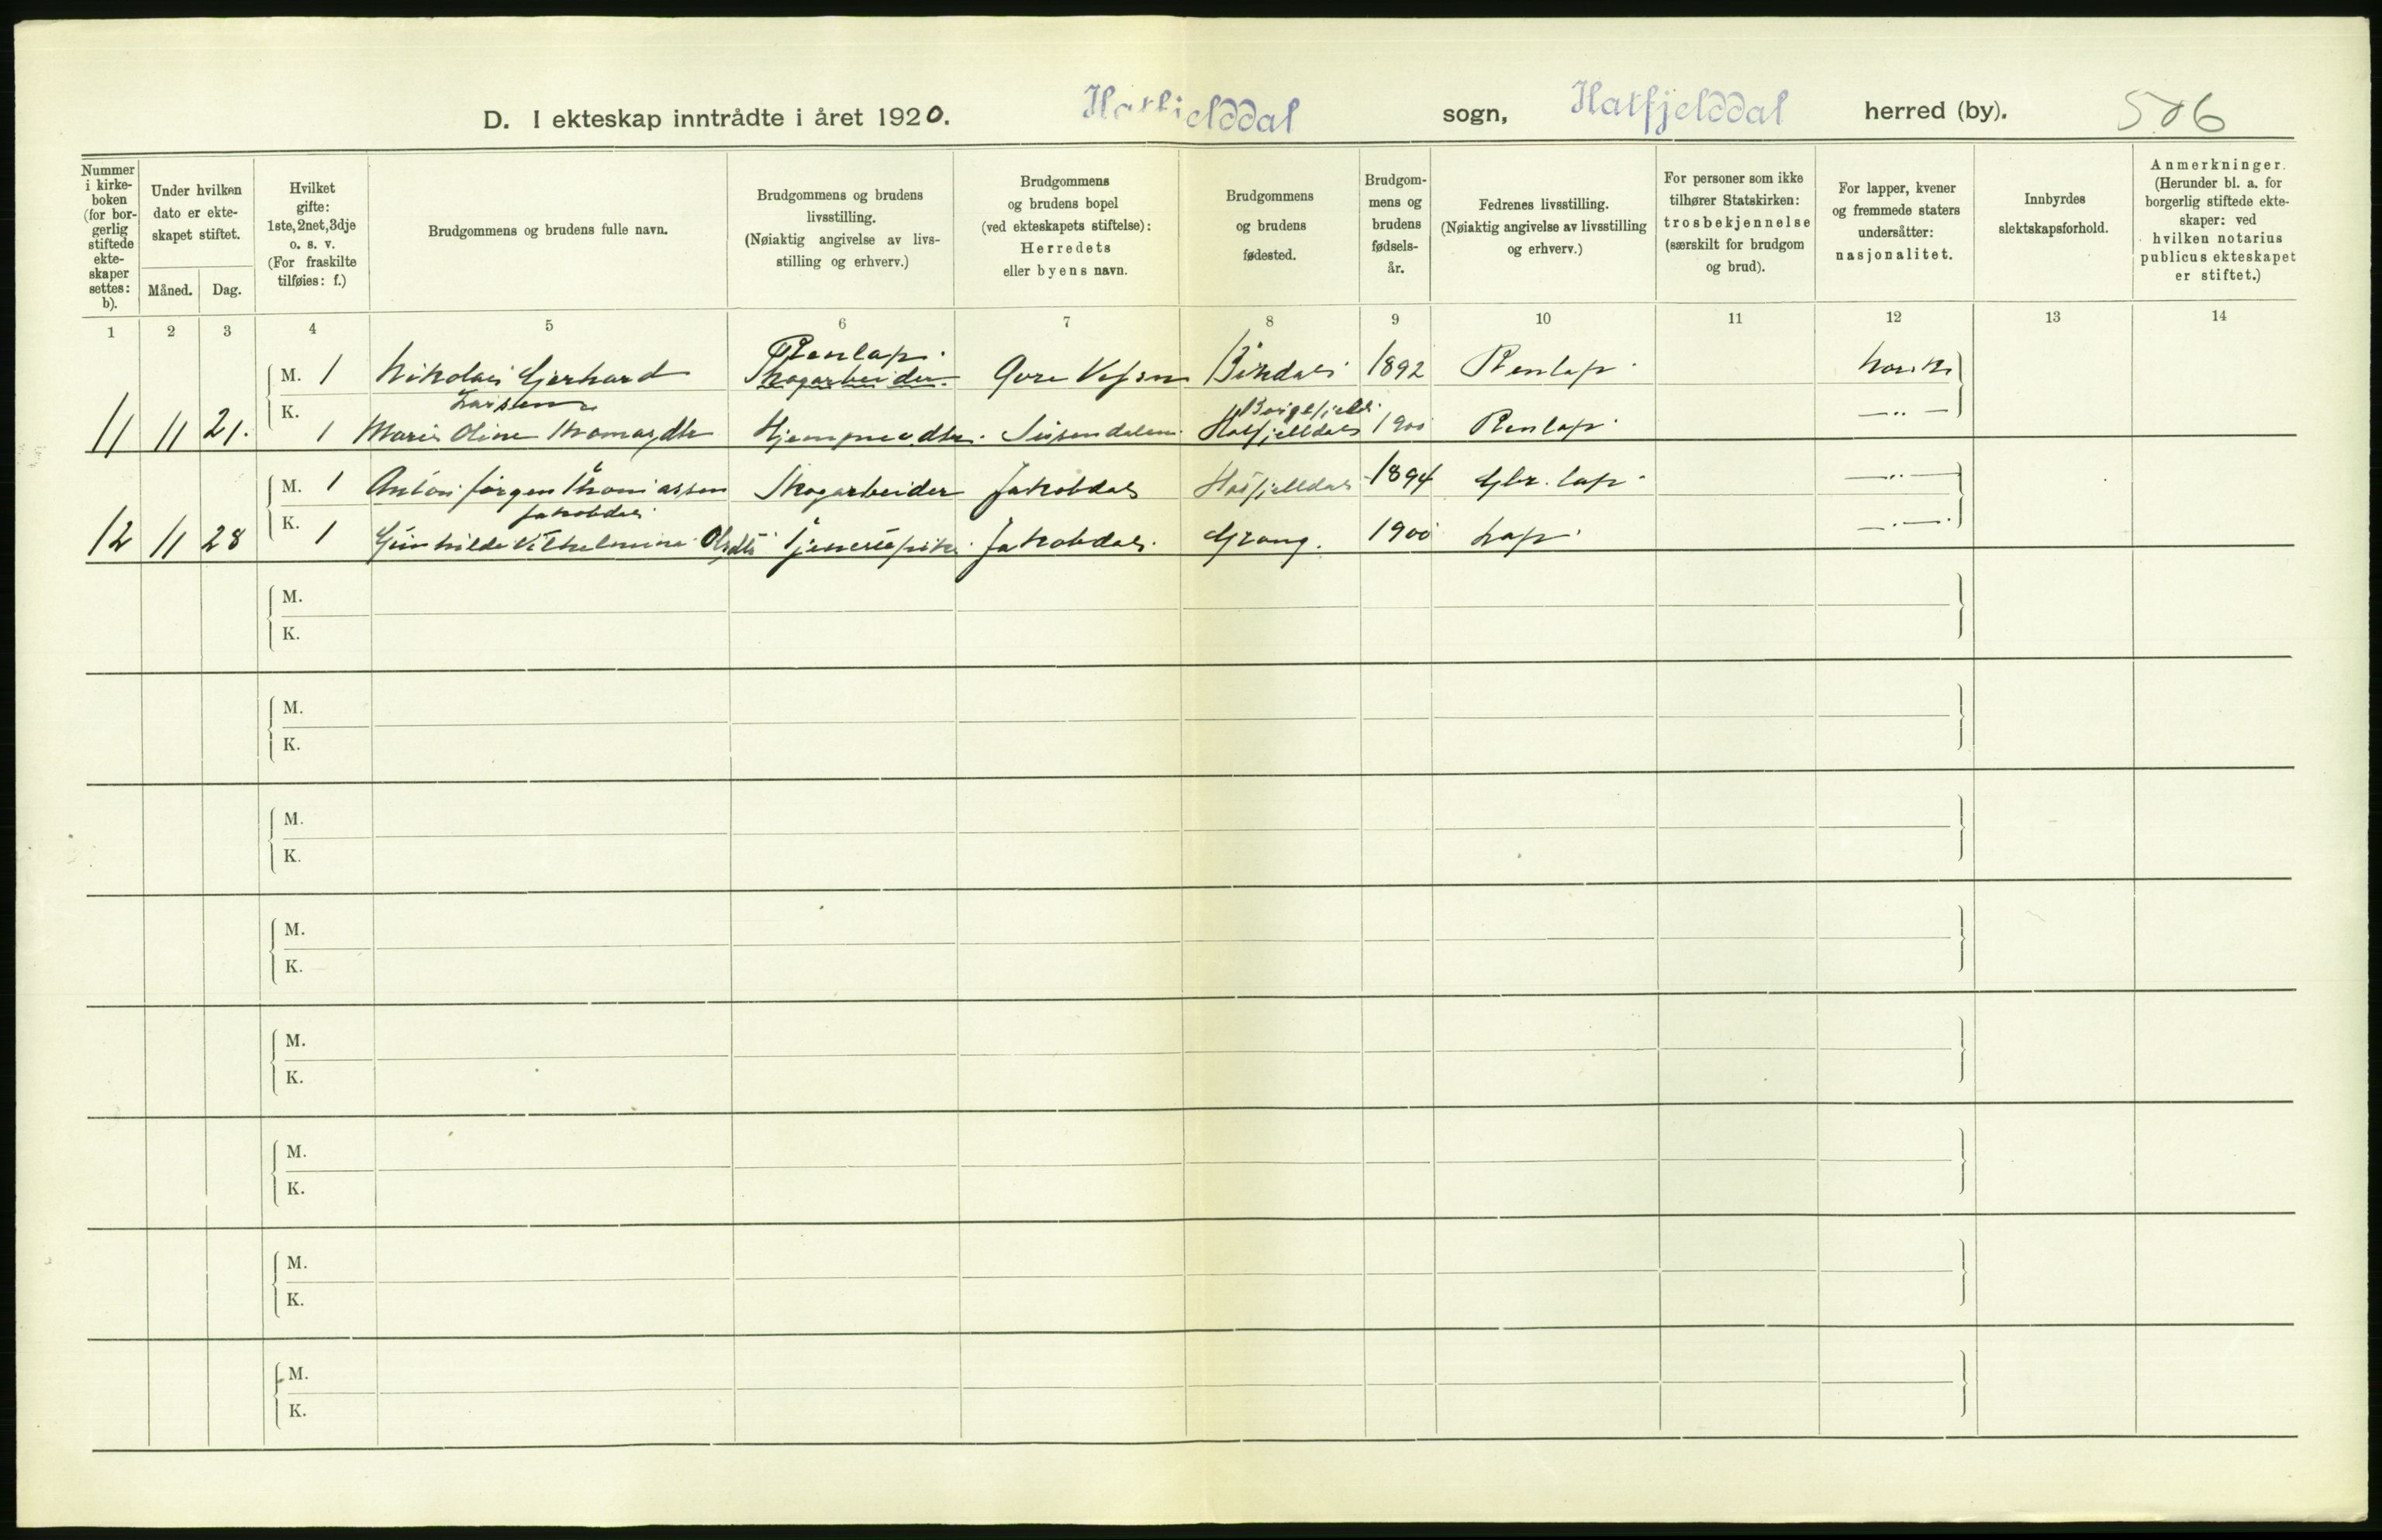 D. I ekteskap inntrådte i året 1920. Hatfjelddal sogn, Hatfjelddal herred (by). 586
Nummer i kirke-boken (for bor-gerlig stiftede ekte-skaper settes: b).
Under hvilken dato er ekte-skapet stiftet.
Måned. Dag.
Hvilket gifte: 1ste, 2net, 3dje o. s. v. (For fraskilte tilføies: f.)
Brudgommens og brudens fulle navn.
Brudgommens og brudens livsstilling. (Nøiaktig angivelse av livs-stilling og erhverv.)
Brudgommens og brudens bopel (ved ekteskapets stiftelse): Herredets eller byens navn.
Brudgommens og brudens fødested.
Brudgom-mens og brudens fødsels-år.
Fedrenes livsstilling. (Nøiaktig angivelse av livsstilling og erhverv.)
For personer som ikke tilhører Statskirken: trosbekjennelse (særskilt for brudgom og brud).
For lapper, kvener og fremmede staters undersåtter: nasjonalitet.
Innbyrdes slektskapsforhold.
Anmerkninger. (Herunder bl. a. for borgerlig stiftede ekte-skaper: ved hvilken notarius publicus ekteskapet er stiftet.)
1 2 3 4 5 6 7 8 9 10 11 12 13 14
Renlap.
M. 1 Nikolai Gjerhard Skogarbeider. Vefsn Bindal 1892 Renlap. norsk
Larsen
Børgefjeld
11 11 21. K. 1 Marie Oline Thomasdtr Susendalen Hatfjelldal 1900 Renlap. —„—
M. 1 Anton Jørgen Thomassen Skogarbeider Jakobdal Hatfjelldal 1894 Gbr. lap. —„—
Jakobdal
12 11 28 K. 1 Gunhilde Vilhelmine Olsdtr Tjenestepike Jakobdal. Grong. 1900 Lap. —„—
M.
K.
M.
K.
M.
K.
M.
K.
M.
K.
M.
K.
M.
K.
M.
K.